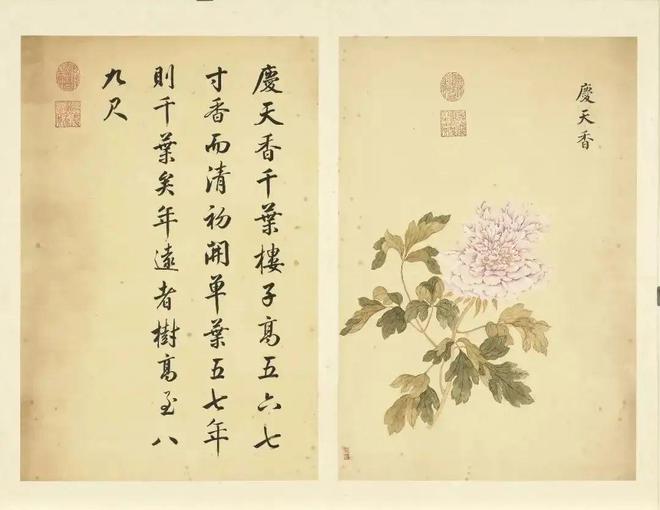 慶天香
慶天香千葉樓子高五六七
寸香而清初開單葉五七年
則千葉矣年遠者樹高至八
九尺